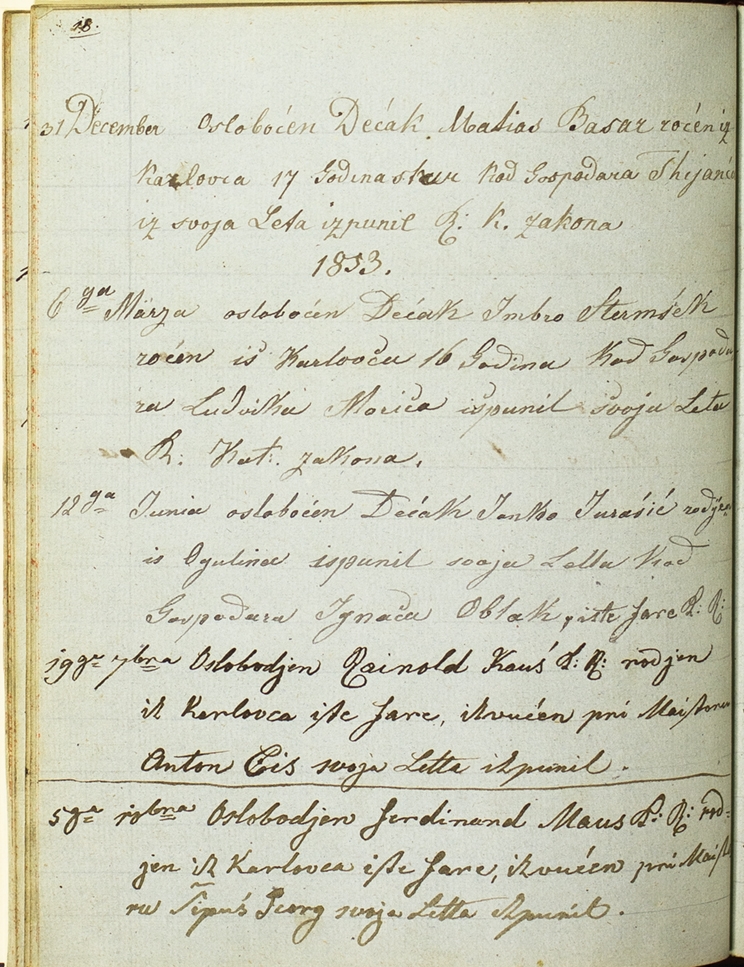 18.
31 December Osloboćen Dećak Matias Basar roćen iz
Karlovca 17 Godina star Kod Gospodara
iz svoja Leta izpunil R: K. zakona
1853.
6ga Märza osloboćen Dećak Imbro Stermšek
roćen is Karlovča 16 Godina Kod Gospoda
ra Ludvika Moriča ispunil svoju Leta
R: Kat: zakona.
12ga Junia osloboćen Dećak Janko Jurašić
is Ogulina ispunil svoja Letta Kod
Gospodara Ignača Oblak, iste fare R: R:
19ga 7bra Oslobodjen Rainold Kauš R: R: rodjen
iz Karlovca iste fare, izvućen pri Maistoru
Anton Eis svoja Letta izpunil.
5ga 10bra Oslobodjen Ferdinand Maus R: R: rod-
jen iz Karlovca iste fare, izvućen pri Maist
ru Georg svoja Letta izpunil.